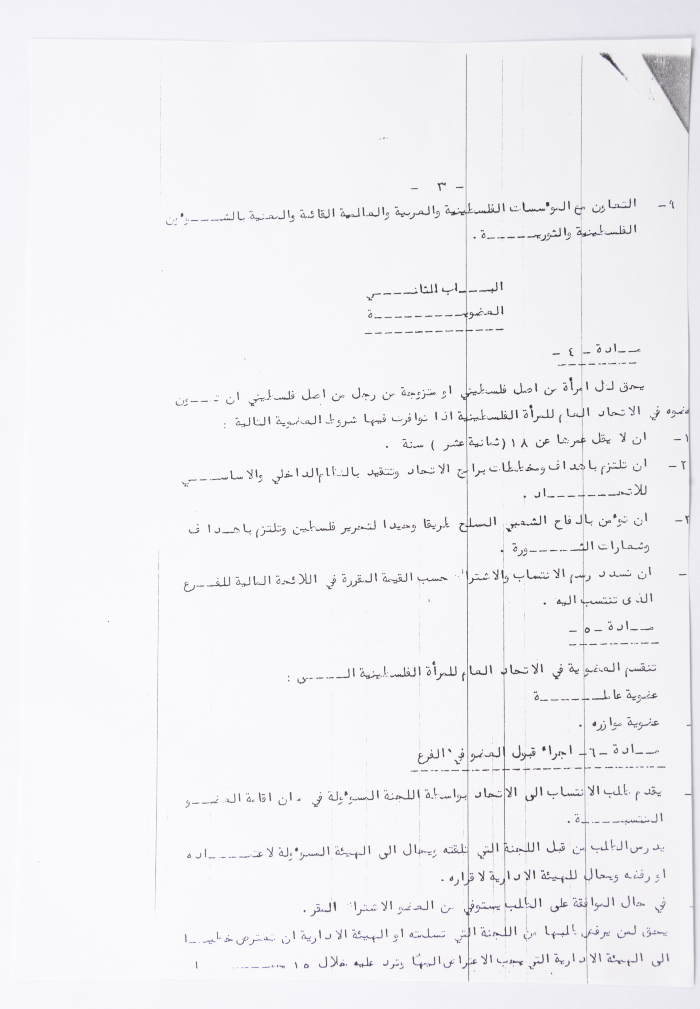 - ٣ -
٩- التعاون مع المؤسسات الفلسطينية والعربية والعالمية القائمة والمعنية بالشـــؤون
الفلسطينية والثوريــــة .
البـــاب الثانـــي
العضويـــــــة
مـــادة - ٤ -
يحق لكل امرأة من اصل فلسطيني او متزوجة من رجل من اصل فلسطيني ان تـــون
عضوه في الاتحاد العام للمرأة الفلسطينية اذا توافرت فيها شروط العضوية التالية :
١- ان لا يقل عمرها عن ١٨ (ثمانية عشر ) سنة .
٢- ان تلتزم باهداف ومخططات برامج الاتحاد وتتقيد بالنظام الداخلي والاساســـي
للاتحـــــــاد .
ان تؤمن بالدفاع الشعبي المسلح طريقا وحيدا لتحرير فلسطين وتلتزم باهداف
وشعارات الثـــــورة .
- ان تسدد رسم الانتساب والاشتراك حسب القيمة المقررة في اللائحة المالية للفـــرع
الذى تنتسب اليه .
مـــادة - ٥ -
تنقسم العضوية في الاتحاد العام للمرأة الفلسطينية الـــــى :
عضوية عاملـــــــة
- عضوية موازره .
مـــادة - ٦- اجراء قبول العضو في الفرع
- يقدم طلب الانتساب الى الاتحاد بواسطة اللجنة المسؤولة في مكان اقامة العضـــو
المنتسبـــــة .
يدرس الطلب من قبل اللجنة التي تلقته ويحال الى الهيئة المسؤولة لاعتمـــاده
او رفضه ويحال للهيئة الادارية لاقراره .
في حال الموافقة على الطلب يستوفي من العضو الاشتراك المقر .
يحق لمن يرفض طلبها من اللجنة التي تسلمته او الهيئة الادارية ان تعترض خطيـــا
الى الهيئة الادارية التي الاعتراض وترد عليه خلال ١٥